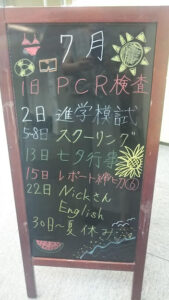 7月
1日 PCR検査
2日 進学模試
5-8日 スクーリング
13日 七夕行事
15日 レポート締切⑥
22日 Nickさん
English
30日〜夏休み